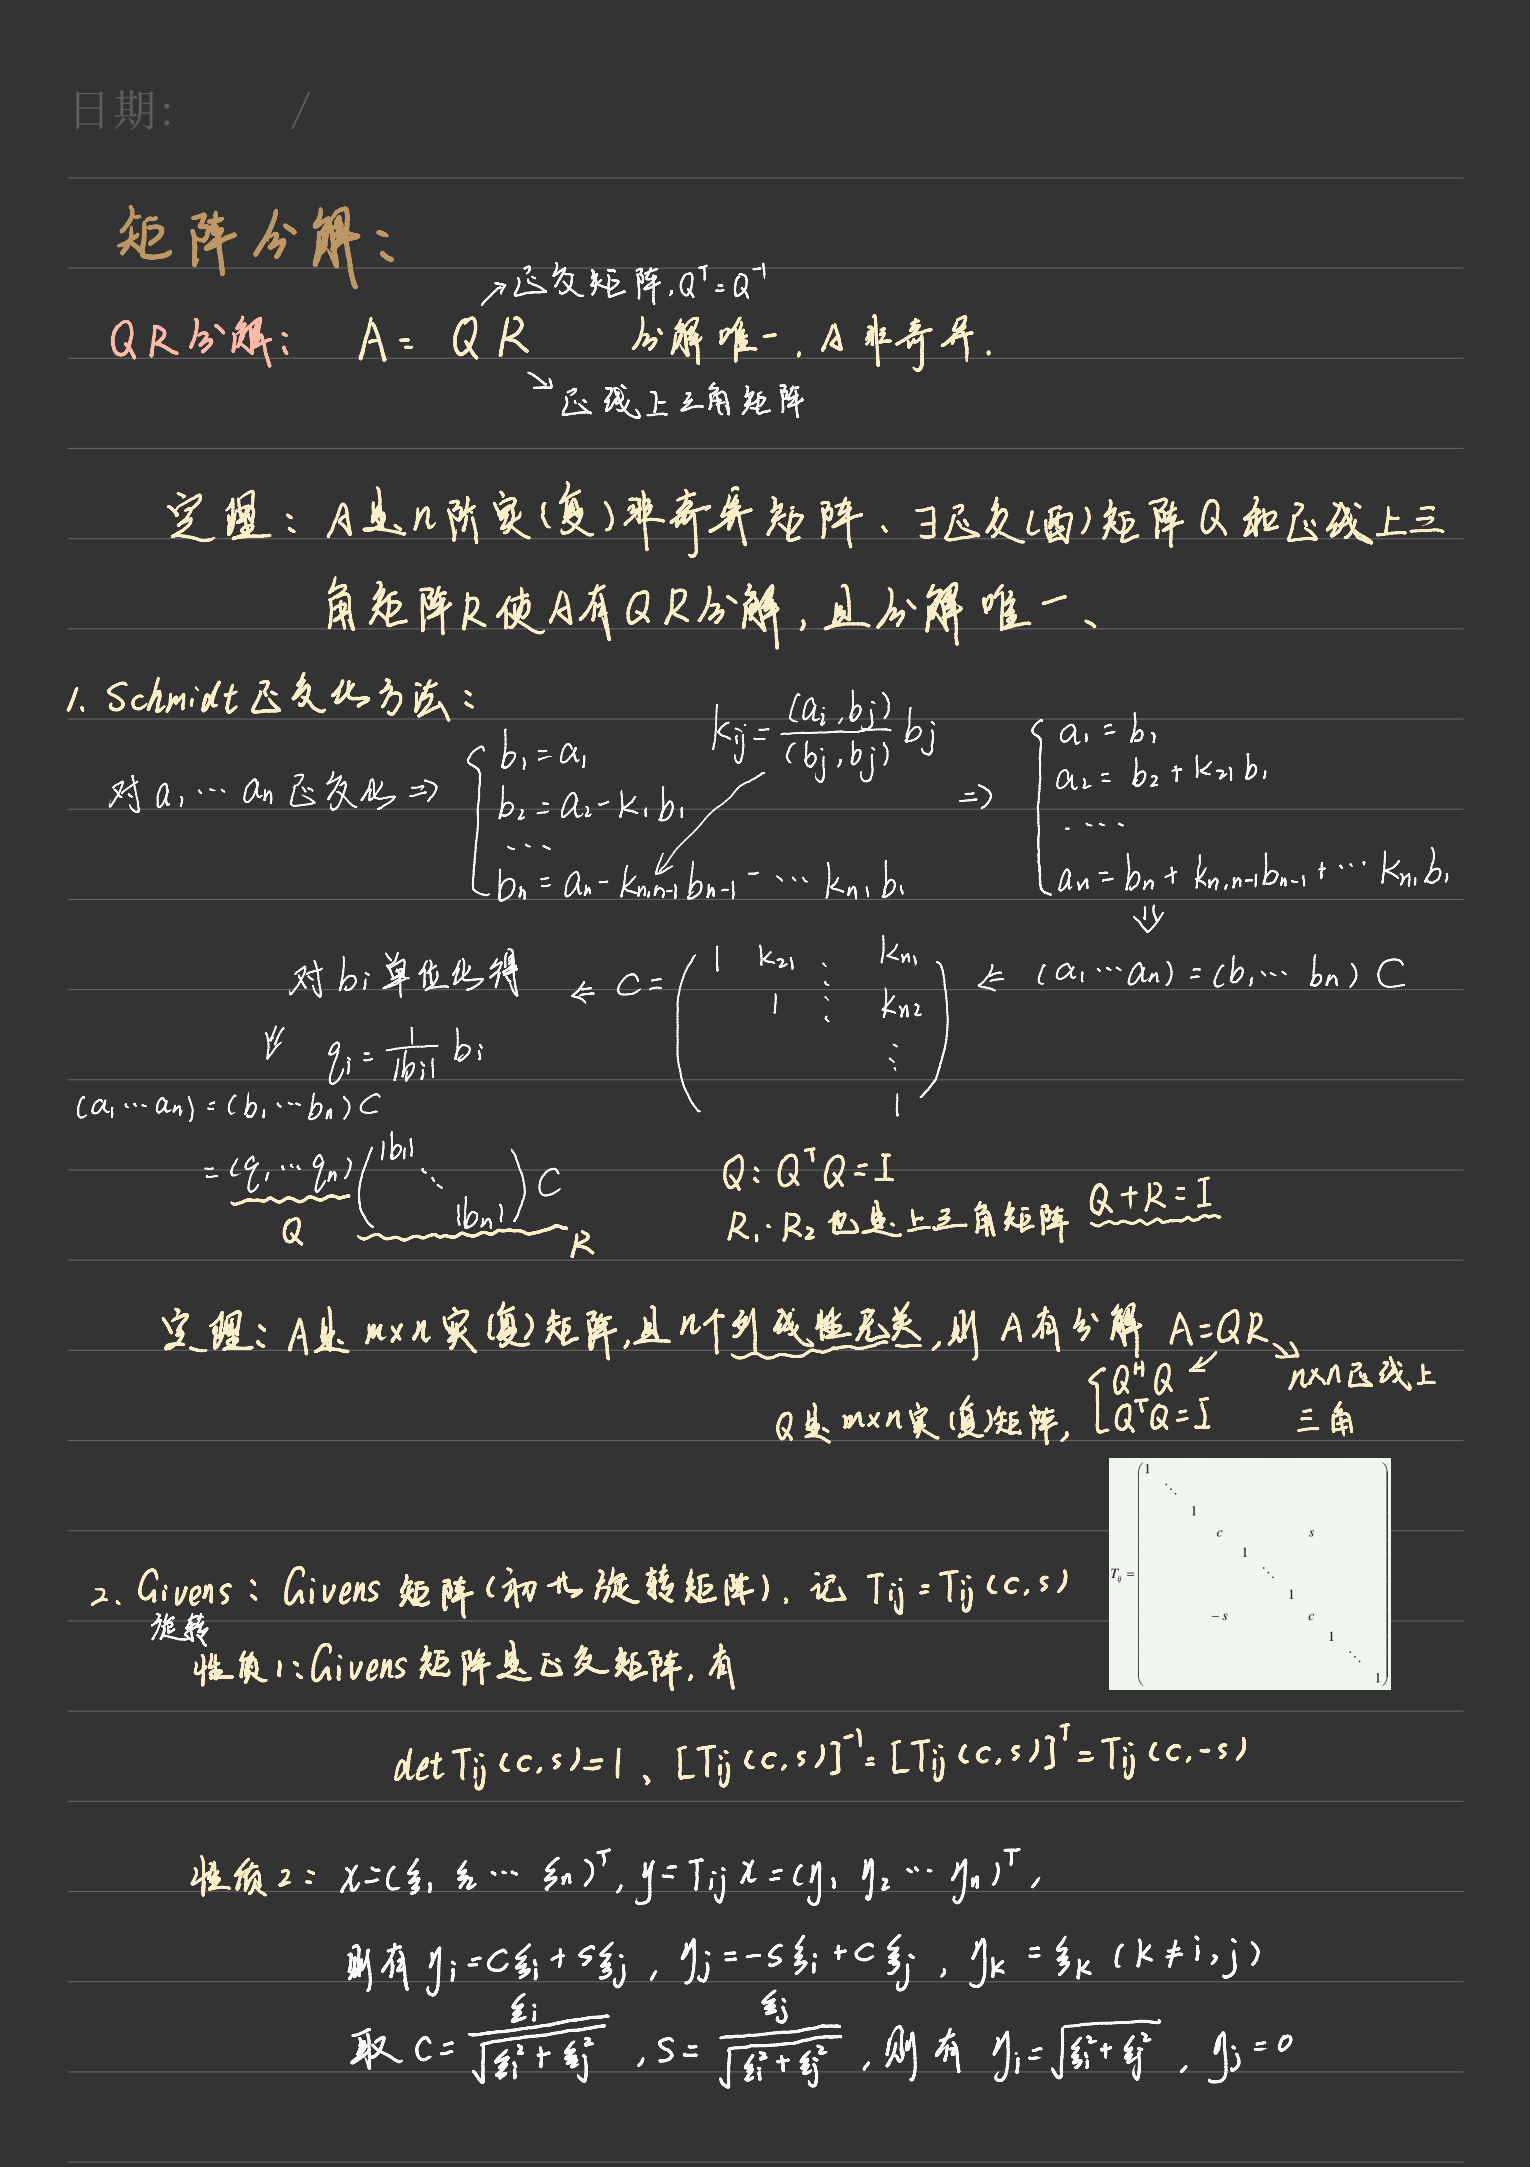 日期: /
矩阵分解：
→正交矩阵，Qᵀ=Q⁻¹
QR分解： A = QR 分解唯一，A非奇异.
↘正线上三角矩阵
定理：A是n阶实(复)非奇异矩阵、∃正交(酉)矩阵Q和正线上三
角矩阵R使A有QR分解，且分解唯一、
1. Schmidt正交化方法：
对a₁…aₙ正交化 ⇒ { b₁=a₁
b₂=a₂-k₁b₁
…
bₙ=aₙ-kₙ,ₙ₋₁bₙ₋₁-…kₙ₁b₁
kᵢⱼ=(aᵢ,bⱼ)/(bⱼ,bⱼ) bⱼ
⇒ { a₁=b₁
a₂=b₂+k₂₁b₁
….
aₙ=bₙ+kₙ,ₙ₋₁bₙ₋₁+…kₙ₁b₁
⇓
⇐ (a₁…aₙ)=(b₁…bₙ)C
⇐ C=( 1 k₂₁ ⋮ kₙ₁
1 ⋮ kₙ₂
⋮
1 )
对bᵢ单位化得
⇓ qᵢ=1/|bᵢ| bᵢ
(a₁…aₙ)=(b₁…bₙ)C
=(q₁…qₙ)(|b₁| ⋱ |bₙ|)C
Q R
Q：QᵀQ=I
R₁·R₂也是上三角矩阵 Q+R=I
定理：A是m×n实(复)矩阵，且n个列线性无关，则A有分解 A=QR
Q是m×n实(复)矩阵，{ QᴴQ
QᵀQ=I
n×n正线上
三角
Tij = ( 1
⋱
1
c s
1
⋱
1
-s c
1
⋱
1 )
2. Givens：Givens矩阵(初北旋转矩阵)，记 Tij=Tij(c,s)
旋转
性质1：Givens矩阵是正交矩阵，有
detTij(c,s)=1、[Tij(c,s)]⁻¹=[Tij(c,s)]ᵀ=Tij(c,-s)
性质2： x=(ξ₁ ξ₂ … ξₙ)ᵀ, y=Tij x=(η₁ η₂ … ηₙ)ᵀ,
则有 ηᵢ=cξᵢ+sξⱼ, ηⱼ=-sξᵢ+cξⱼ, ηₖ=ξₖ (k≠i,j)
取 c=ξᵢ/√(ξᵢ²+ξⱼ²), s=ξⱼ/√(ξᵢ²+ξⱼ²), 则有 ηᵢ=√(ξᵢ²+ξⱼ²), ηⱼ=0